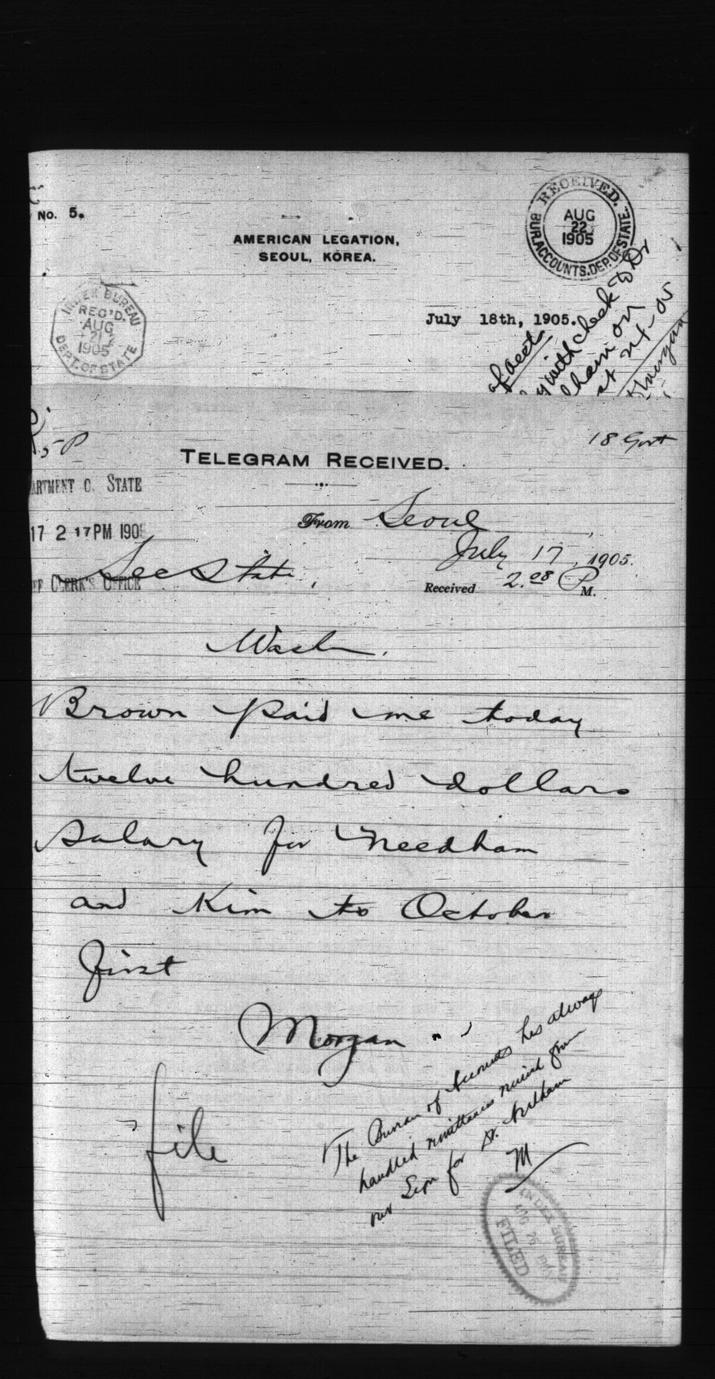 No. 5.
AMERICAN LEGATION,
SEOUL, KOREA.
RECEIVED.
AUG
22
1905
BUR. ACCOUNTS. DEP. OF STATE.
INDEX BUREAU
REC'D.
AUG
21
1905
DEPT. OF STATE
July 18th, 1905.
of acct.
with check to Dr
ham on
at
18 Govt
TELEGRAM RECEIVED.
ARTMENT O. STATE
17 2 17 PM 190
CLERK'S OFFICE
From Seoul
July 17, 1905.
Sec State,
Received 2.08 P M.
Wash.
Brown paid me today
twelve hundred dollars
salary for Needham
and Kim to October
first
Morgan
file
The Bureau of Accounts has always
handled remittances from
our Legn for Dr. Needham
M
INDEX BUREAU
FILED